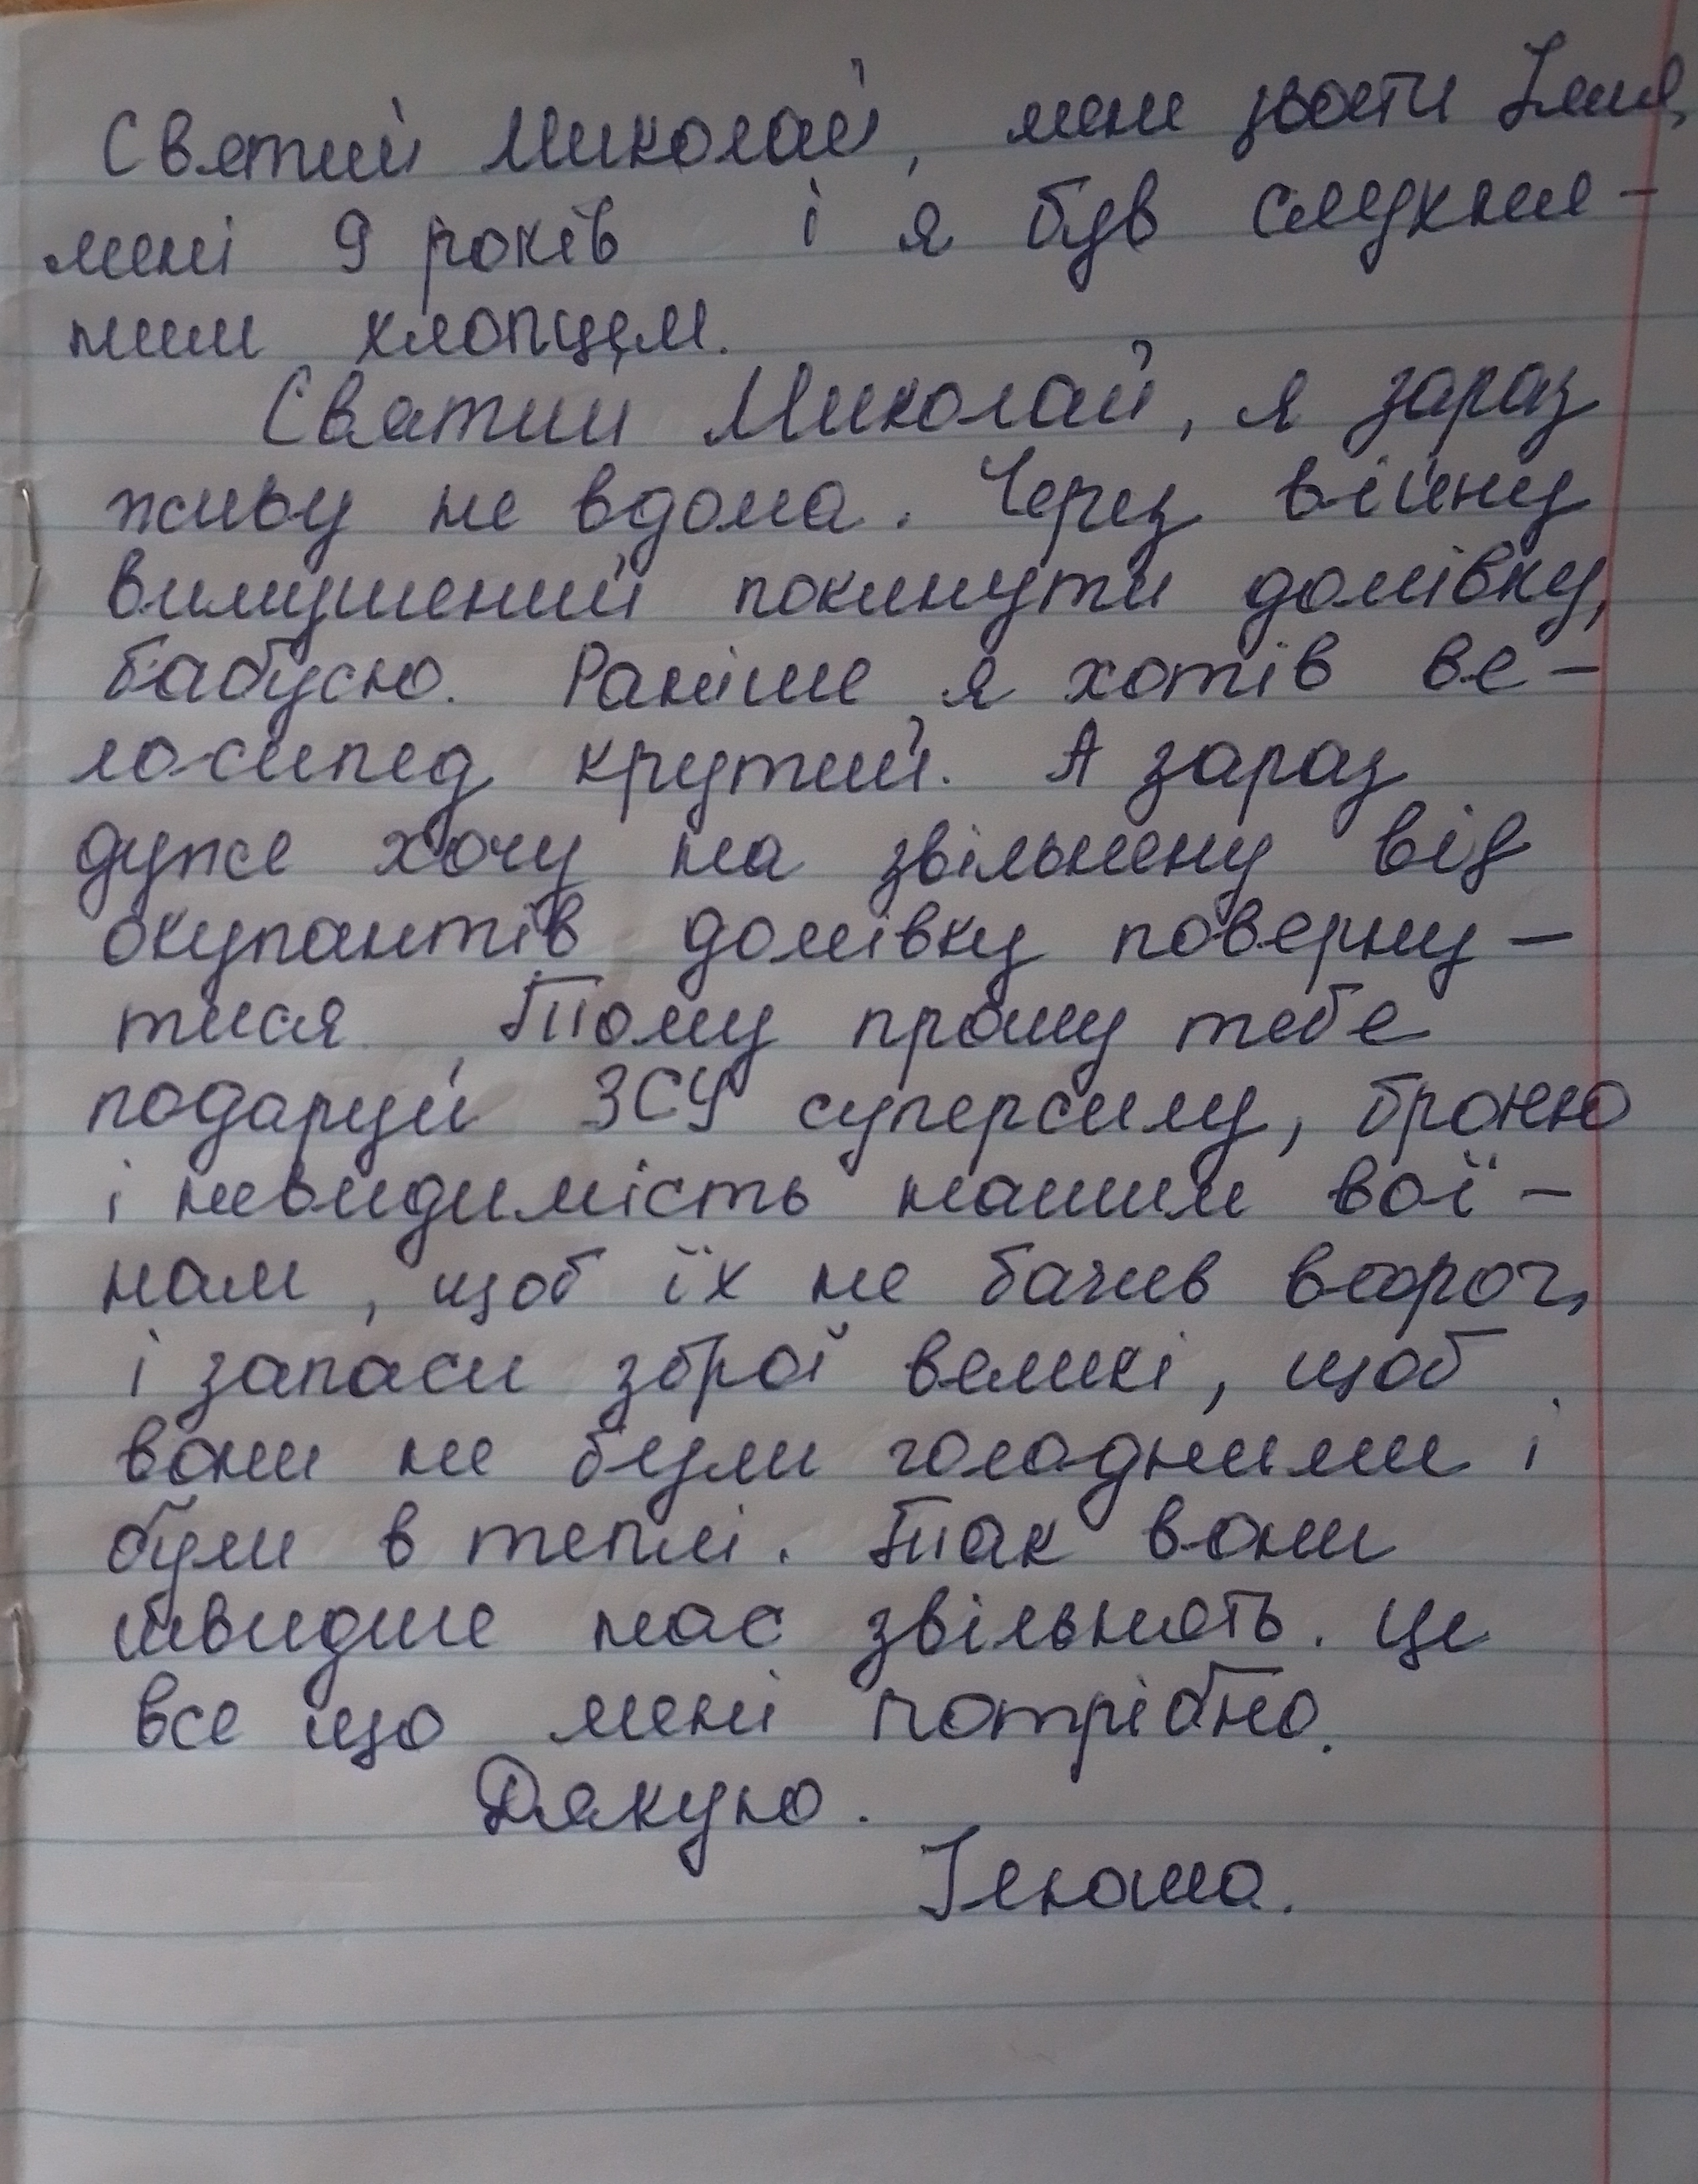 Святий Миколай, мене звати Ілля,
мені 9 років і я був слухня-
ним хлопцем.
Святий Миколай, я зараз
живу не вдома. Через війну
вимушений покинути домівку,
бабусю. Раніше я хотів ве-
лосипед крутий. А зараз
дуже хочу на звільнену від
окупантів домівку поверну-
тися. Тому прошу тебе
подаруй ЗСУ суперсилу, броню
і невидимість нашим вої-
нам, щоб їх не бачив ворог,
і запаси зброї великі, щоб
вони не були голодними і
були в теплі. Так вони
швидше нас звільнять. Це
все що мені потрібно.
Дякую.
Ілюша.